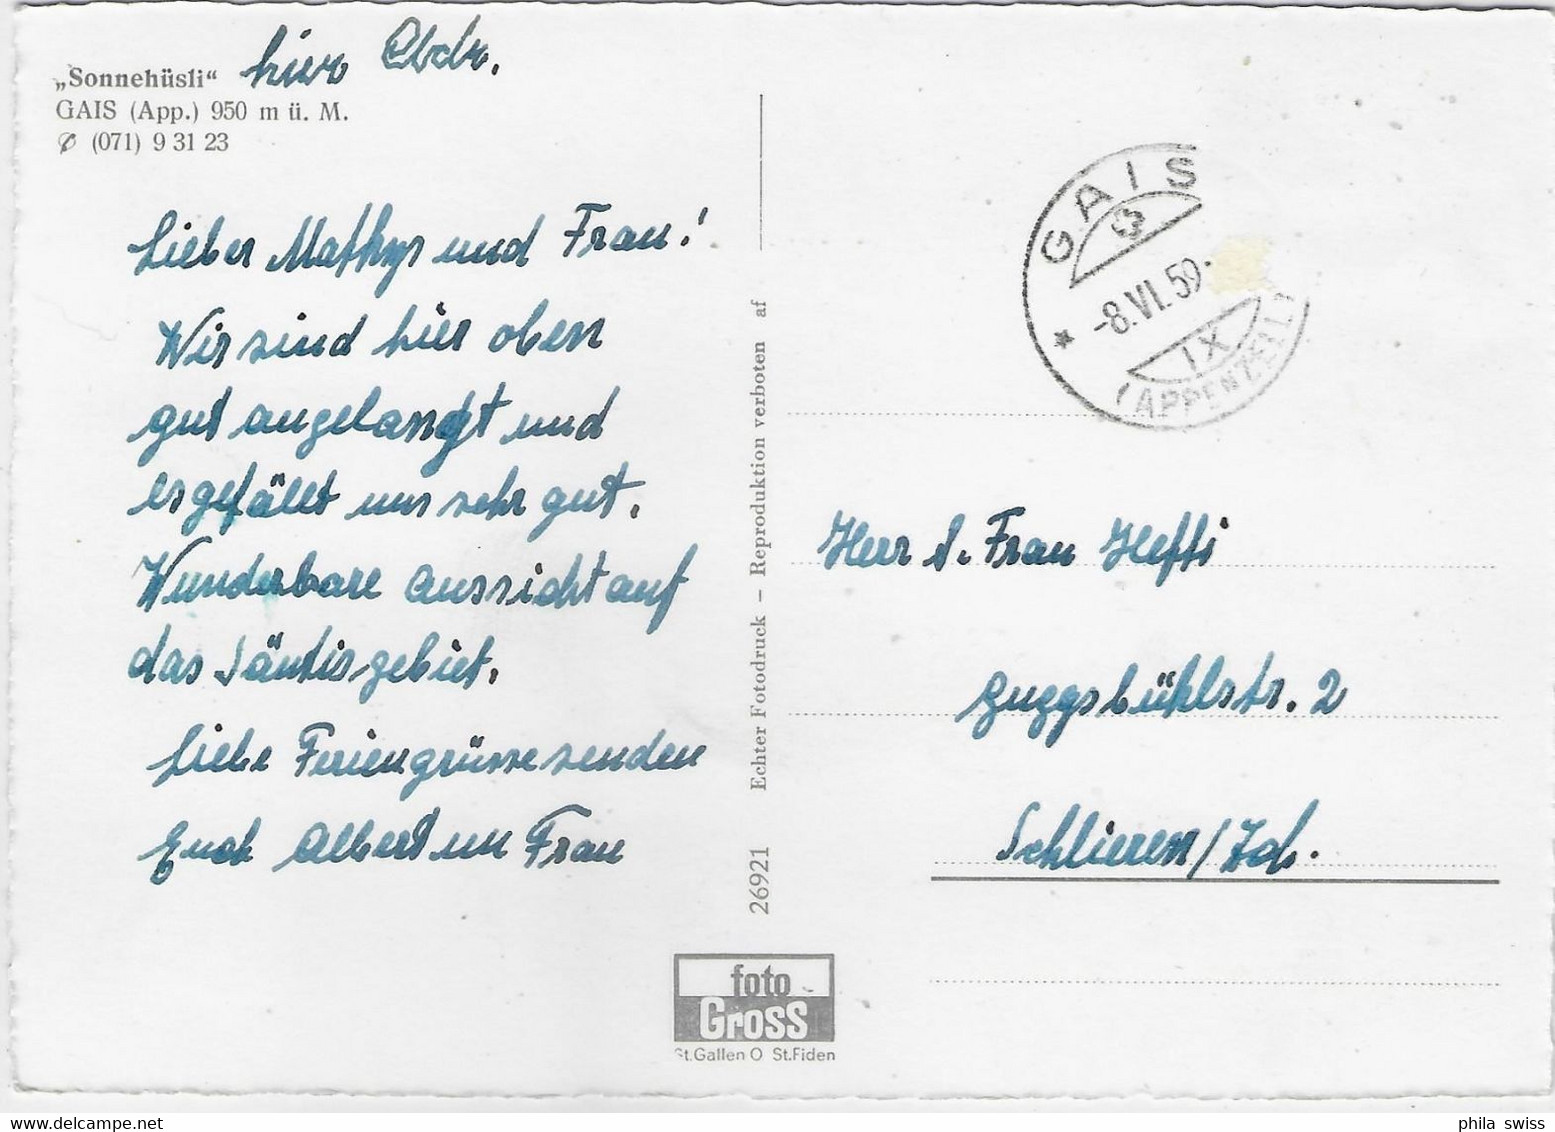 „Sonnehüsli“ hier
GAIS (App.) 950 m ü. M.
✆ (071) 9 31 23
Lieber Mathys und Frau!
Wir sind hier oben
gut angelangt und
es gefällt uns sehr gut.
Wunderbare Aussicht auf
das Säntisgebiet.
Liebe Feriengrüsse senden
Euch Albert un Frau
26921 Echter Fotodruck – Reproduktion verboten af
foto
Gross
St.Gallen O St.Fiden
GAIS
-8.VI.59.
IX
(APPENZELL)
Herr & Frau Hefti
Guggsbühlstr. 2
Schlieren/Zch.
phila swiss